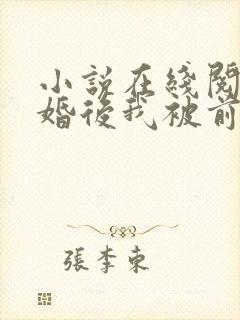 小説在綫閱
婚後我被前
張李東